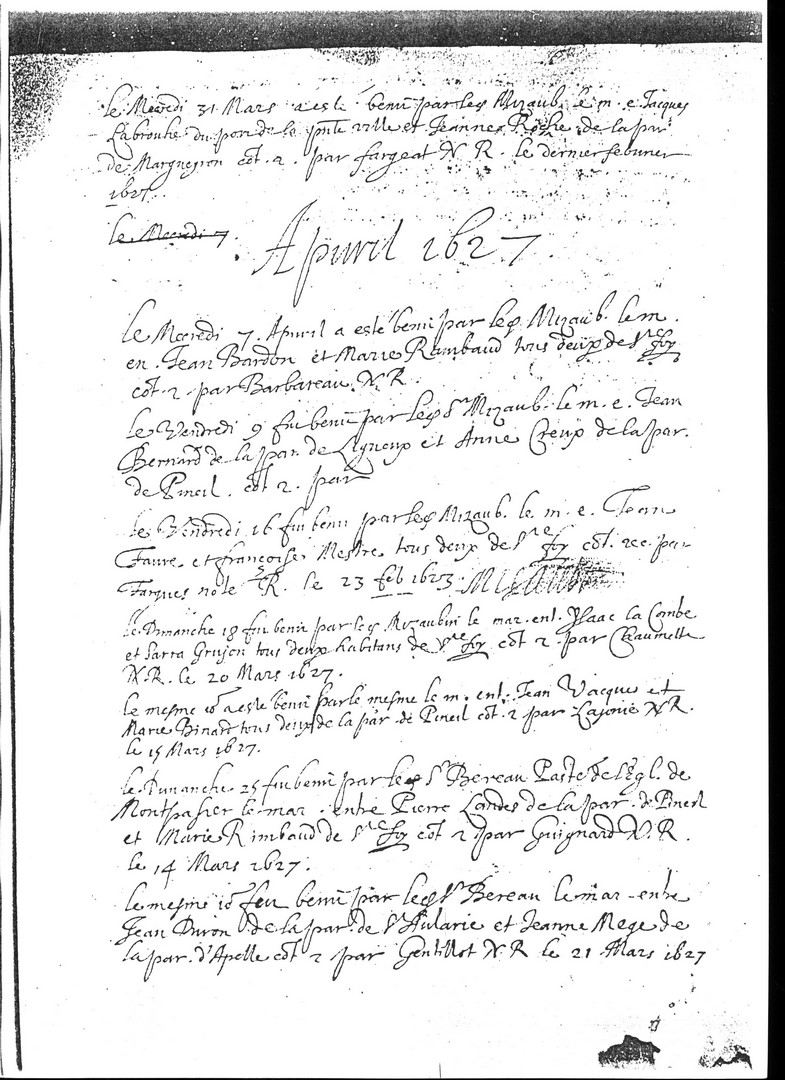 le Mecredi 31 Mars a esté beni par le sr Mizaub. le m. e. Jacques
Labrouhe du port de la pnte ville et Jeanne Roche de la par
de Margueron cot. 2. par fargeat N. R. le dernier febvrier
1627.
le Mecredi 7.
Apuril 1627.
le Mecredi 7. Apuril a esté beni par le sr Mizaub. le m.
en. Jean Bardon et Marie Rambaud tous deux de Ste foy
cot. 2. par Barbareau N. R.
le Vendredi 9 fu beni par le sr Mizaub. le m. e. Jean
Bernard de la par. de Ligueux et Anne Creux de la par.
de Pineil. cot 2. par
le Vendredi 16 fu beni par le sr Mizaub. le m. e. Jean
Faure et françoise Mestre tous deux de Ste foy cot. rec. par
Farques note R. le 23 feb 1623.
le Dimanche 18 fu beni par le sr Mizaubin le mar. ent. Ysaac la Combe
et Sarra Grujon tous deux habitans de Ste foy cot 2. par Chaumette
N. R. le 20 Mars 1627.
le mesme io a esté beni par le mesme le m. ent. Jean Vacque et
Marie Binard tous deux de la par de Pineil cot. 2 par Lajonie N R.
le 15 Mars 1627.
le Dimanche 25 fu beni par le sr Bereau Paste de l'Egl. de
Montpasier le mar. entre Pierre Landes de la par. de Pineil
et Marie Rimbaud de Ste foy cot 2 par Guignard N. R.
le 14 Mars 1627.
le mesme io feu beni par le sr Bereau le mar. entre
Jean Duron de la par. de St Aularie et Jeanne Mege de
la par. d'Apelle cot 2 par Gentillot N. R le 21 Mars 1627